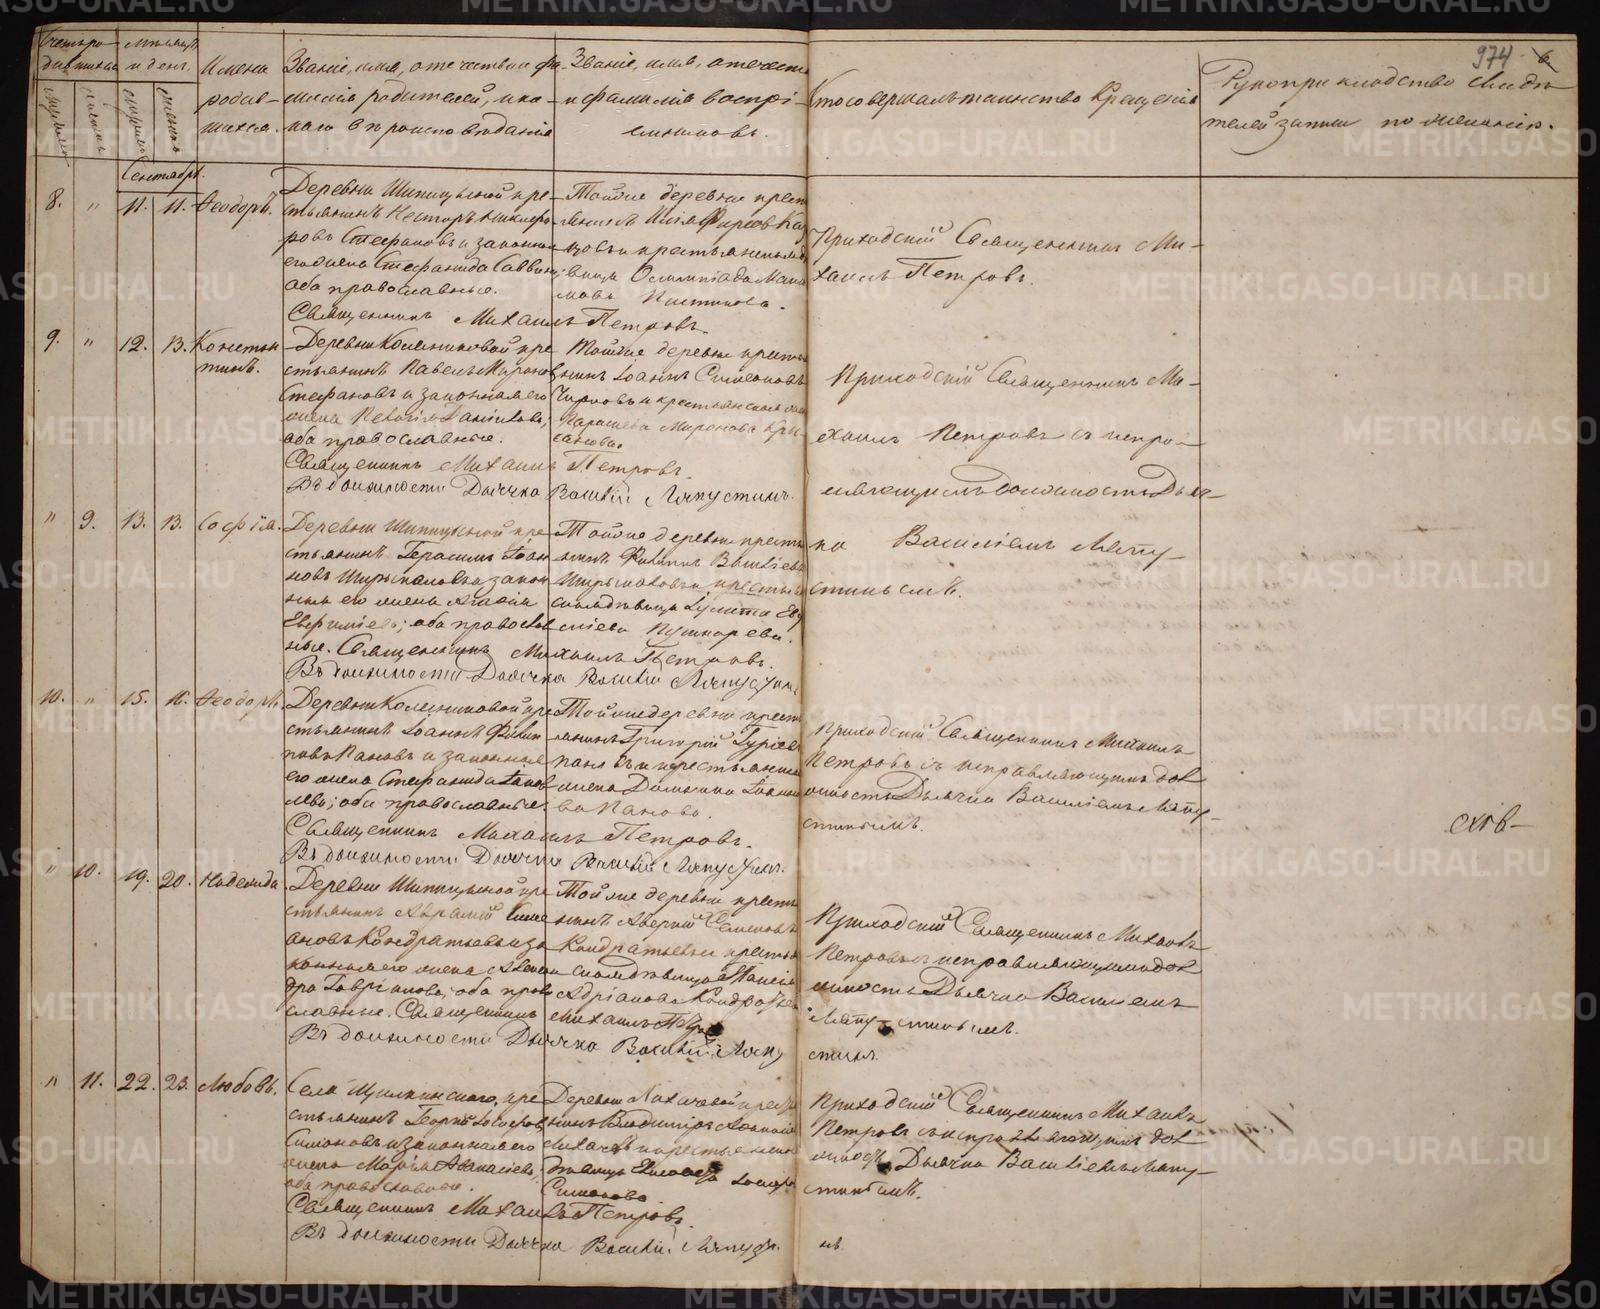 974
Счетъ ро-
дившихся
Мѣсяцъ
и день.
Имена
родив-
шихся.
Званіе, имя, отечество и фа-
милія родителей, и ка-
кого вѣроисповѣданія
Званіе, имя, отечество
и фамилія воспрі-
емниковъ.
Кто совершалъ таинство крещенія
Рукоприкладство свидѣ-
телей записи по желанію.
Сентябрь.
8. " 11. 11. Ѳеодоръ.
Деревни Шипицыной кре-
стьянинъ Несторъ Никифо-
ровъ Стефановъ и законная
его жена Стефанида Саввина;
оба православные.
Священникъ Михаилъ Петровъ.
Тойже деревни крест
янинъ Илія Фирсов
цовъ и крестьянская дѣ
вица Олимпіада
Приходскій Священникъ Ми-
хаилъ Петровъ.
9. " 12. 13. Констан
тинъ.
Деревни Колесниковой кре
стьянинъ Павелъ Мироновъ
Стефановъ и законная его
жена
оба православные.
Священникъ Михаилъ Петровъ.
Въ должности Дьячка Василій Ляпустинъ.
Тойже деревни кресть
нинъ Іоаннъ Симеоновъ
и крестьянская
Параскева Миронова
Приходскій Священникъ Ми-
хаилъ Петровъ съ испра-
вляющимъ должность Дьяч-
ка Василіемъ Ляпу-
стинымъ.
" 9. 13. 13. Софія.
Деревни Шипицыной кре-
стьянинъ Герасимъ Іоан
новъ Ширыкаловъ и закон
ная его жена Агаѳія
Евфиміева; оба православ
ные. Священникъ Михаилъ Петровъ.
Въ должности Дьячка Василій Ляпустинъ
Тойже деревни кресть
нинъ Филиппъ Василіевъ
Ширыкаловъ и крестьян
ская дѣвица Іулитта Ев
Пушкарева.
10. " 15. 16. Ѳеодоръ.
Деревни Колесниковой кре
стьянинъ Іоаннъ Филип
повъ Пановъ и законная
его жена Стефанида Іаков
лева; оба православные
Священникъ Михаилъ Петровъ.
Въ должности Дьячка Василій Ляпустинъ.
Тойже деревни крест
янинъ Григорій Гуріевъ
Пановъ и крестьянская
жена Домника Іоанно
ва Панова.
Приходскій Священникъ Михаилъ
Петровъ съ исправляющимъ дол
жность Дьячка Василіемъ Ляпу-
стинымъ.
" 10. 19. 20. Надежда
Деревни Шипицыной кре
стьянинъ Аврамій Симе
оновъ Кондратьевъ и за
конная его жена Алексан
дра Гавріилова; оба право
славные. Священникъ Михаилъ Петровъ
Въ должности Дьячка Василій Ляпу
стинъ.
Тойже деревни кресть
нинъ Аверкій Семеновъ
Кондратьевъ и крестьян
ская дѣвица
Адріанова Кондратьева
Приходскій Священникъ Михаилъ
Петровъ съ исправляющимъ дол
жность Дьячка Василіемъ
Ляпустинымъ.
" 11. 22. 23. Любовь.
Села кре
стьянинъ Георгій Іосифовъ
Симоновъ и законная его
жена Марѳа Аѳанасіева;
оба православные.
Священникъ Михаилъ Петровъ.
Въ должности Дьячка Василій Ляпусти
нъ.
Деревни Лихачевой кресть
нинъ Владиміръ
Лихачевъ и крестьянская
дѣвица Елисавета Іосифова
Симонова.
Приходскій Священникъ Михаилъ
Петровъ съ исправляющимъ дол
жность Дьячка Василіемъ Ляпу-
стинымъ.
METRIKI.GASO-URAL.RU